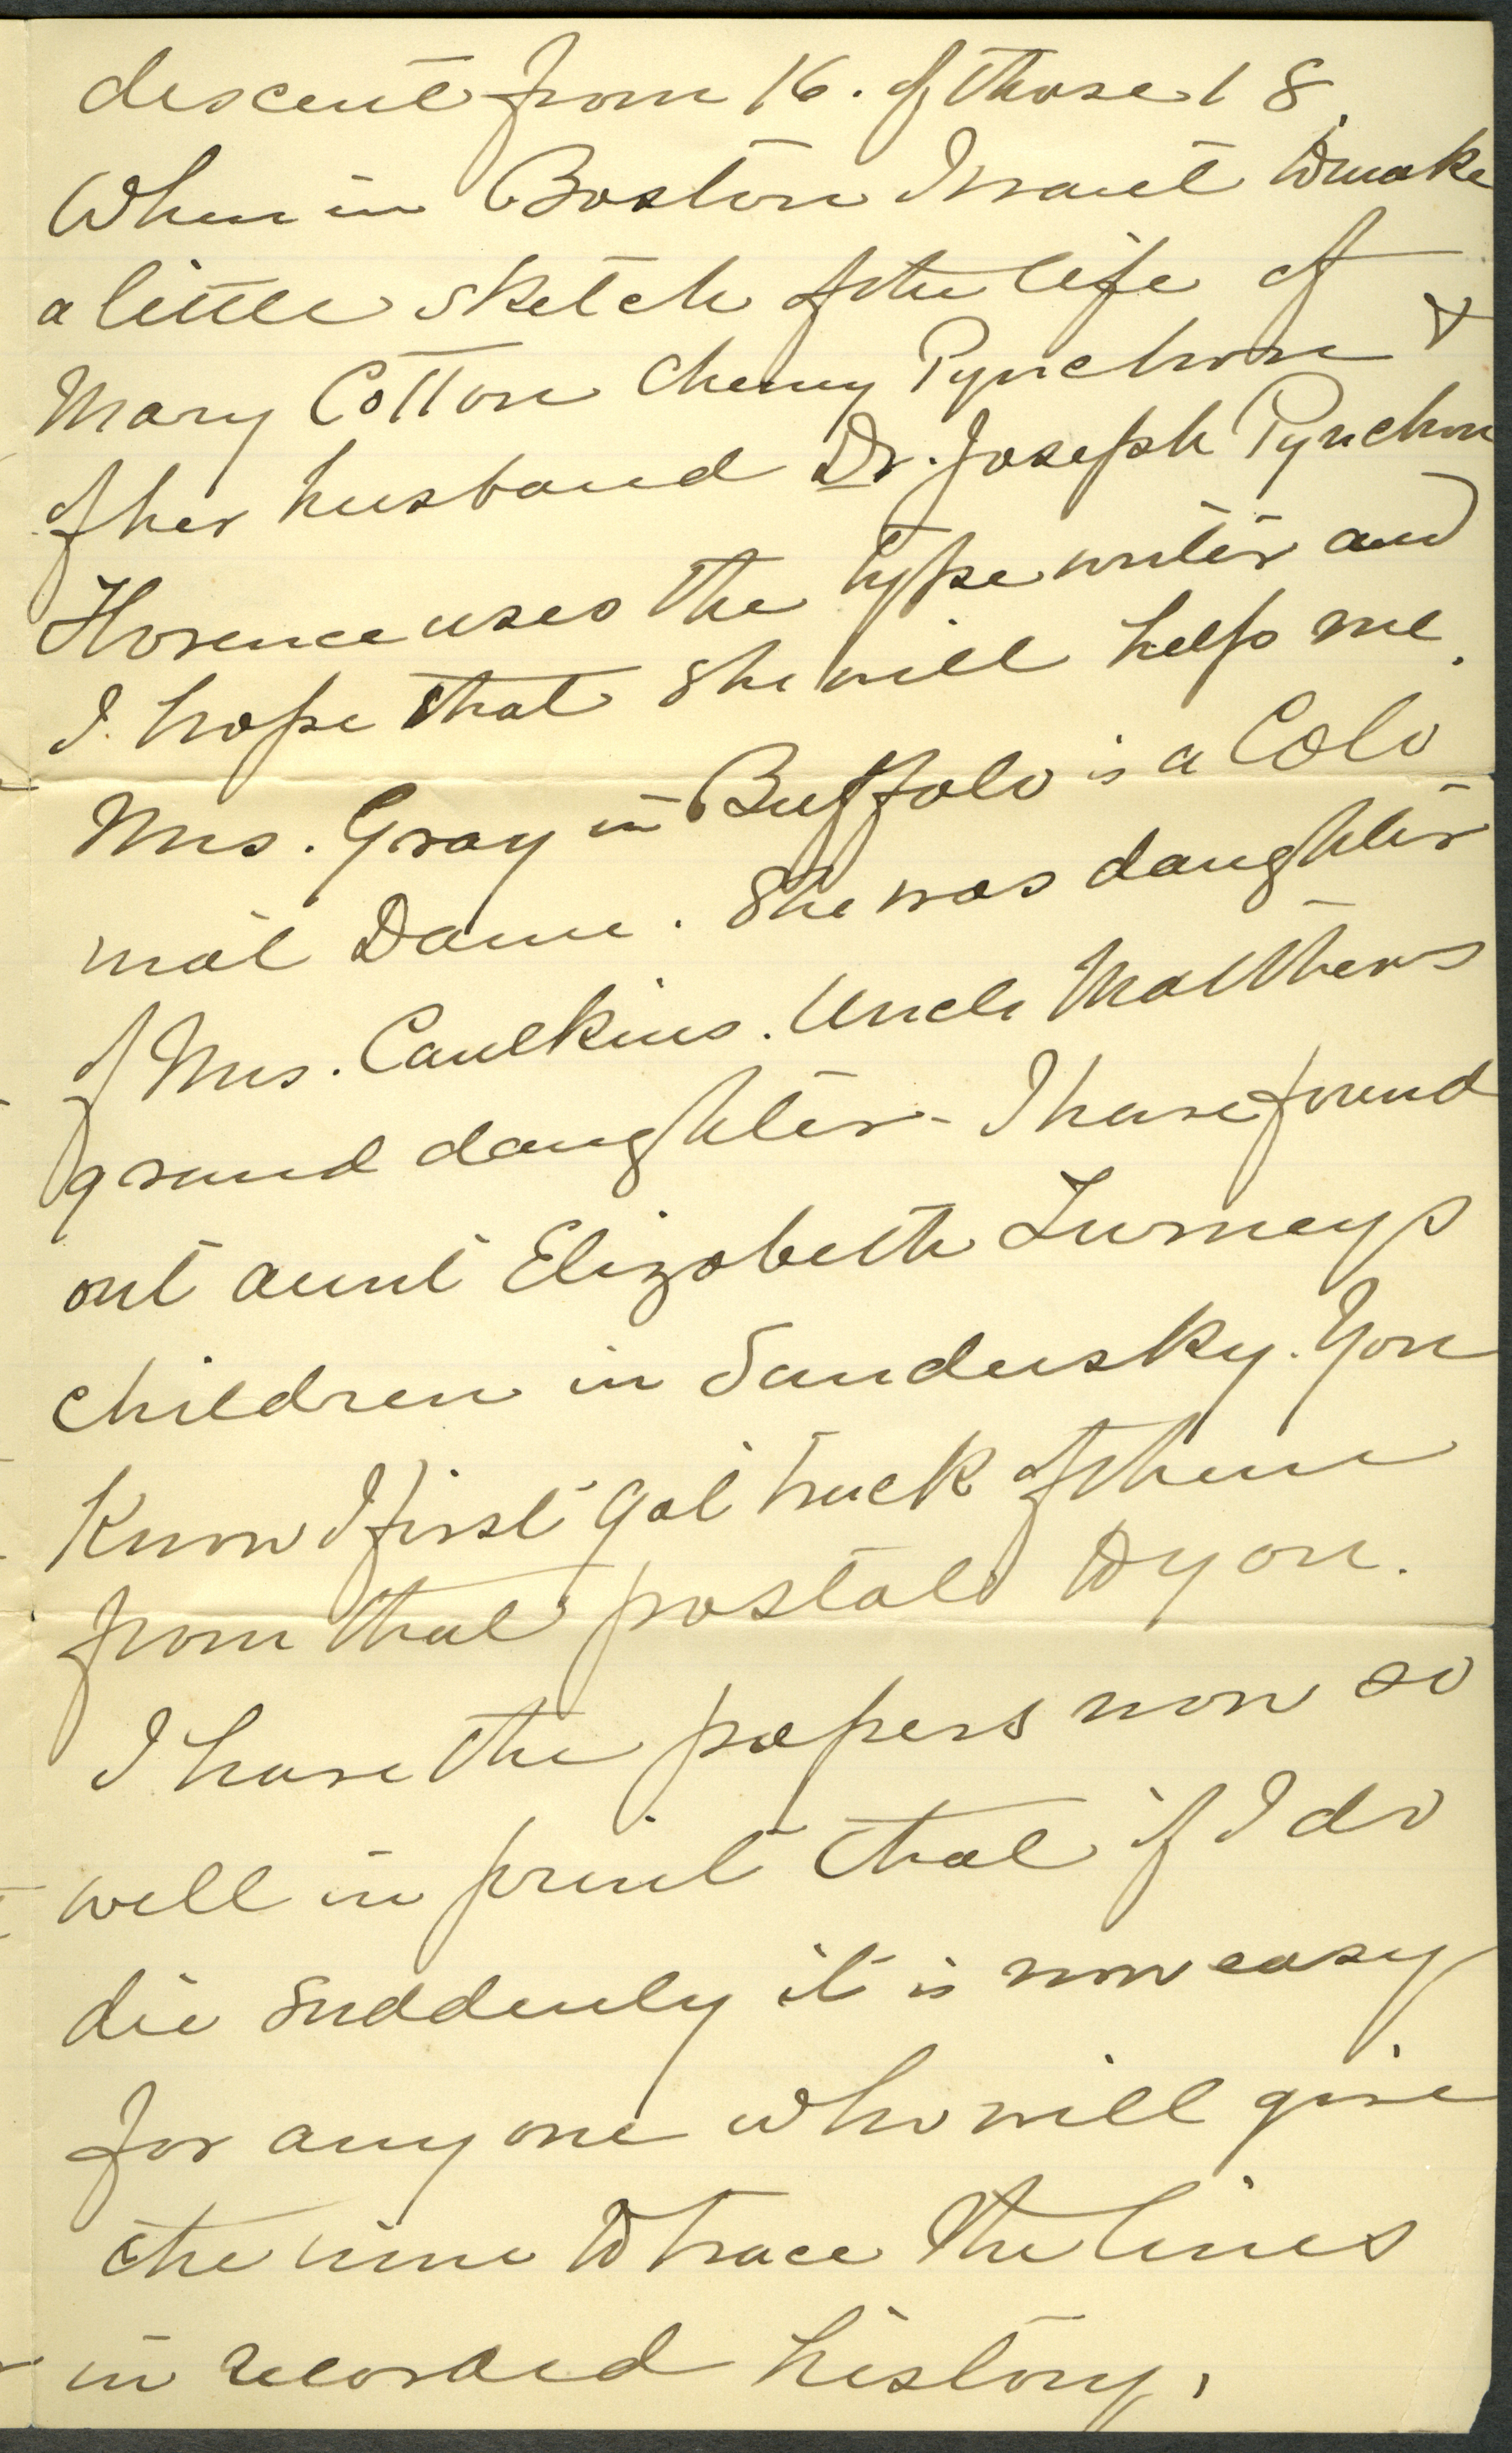 descent from 16. of those 18.
When in Boston I want to make
a little sketch of the life of
Mary Cotton Cheney Pynchon &
of her husband Dr. Joseph Pynchon
Florence uses the type writer and
I hope that she will help me.
Mrs. Gray in Buffalo is a Colo
nial Dame. She was daughter
of Mrs. Caulkins. Uncle Matthews
grand daughter - I have found
out aunt Elizabeth Turneys
children in Sandusky. You
know I first got track of them
from that postal to you.
I have the papers now so
well in print that if I do
die suddenly it is now easy
for any one who will give
the time to trace the lines
in recorded history.